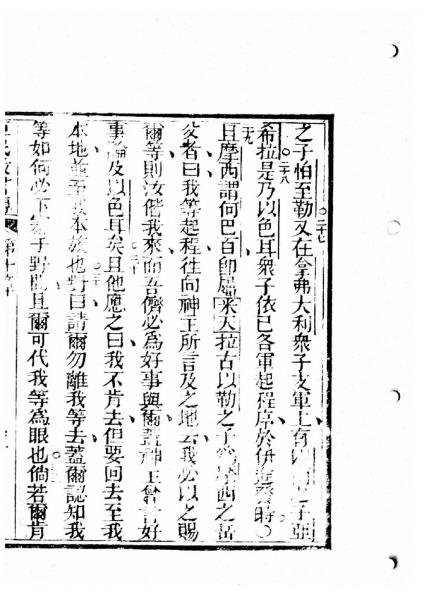 之子怕至勒又在拿弗大利衆子支軍上有以 之子亞
二十七
希拉是乃以色耳衆子依已各軍起程序於伊 時
二十八
且摩西謂何巴百卽 米大拉古以勒之子 摩西之岳
二十九
父者曰我等起程往向神主所言及之地云我必以之賜
爾等則汝偕我來而吾儕必爲好事與爾蓋神主曾言好
事論及以色耳矣且他應之曰我不肯去但要回去至我
三十
本地 至 本族也對曰請爾勿離我等去蓋爾認知我
等如何必下 于野 且爾可代我等爲眼也倘若爾肯
第十